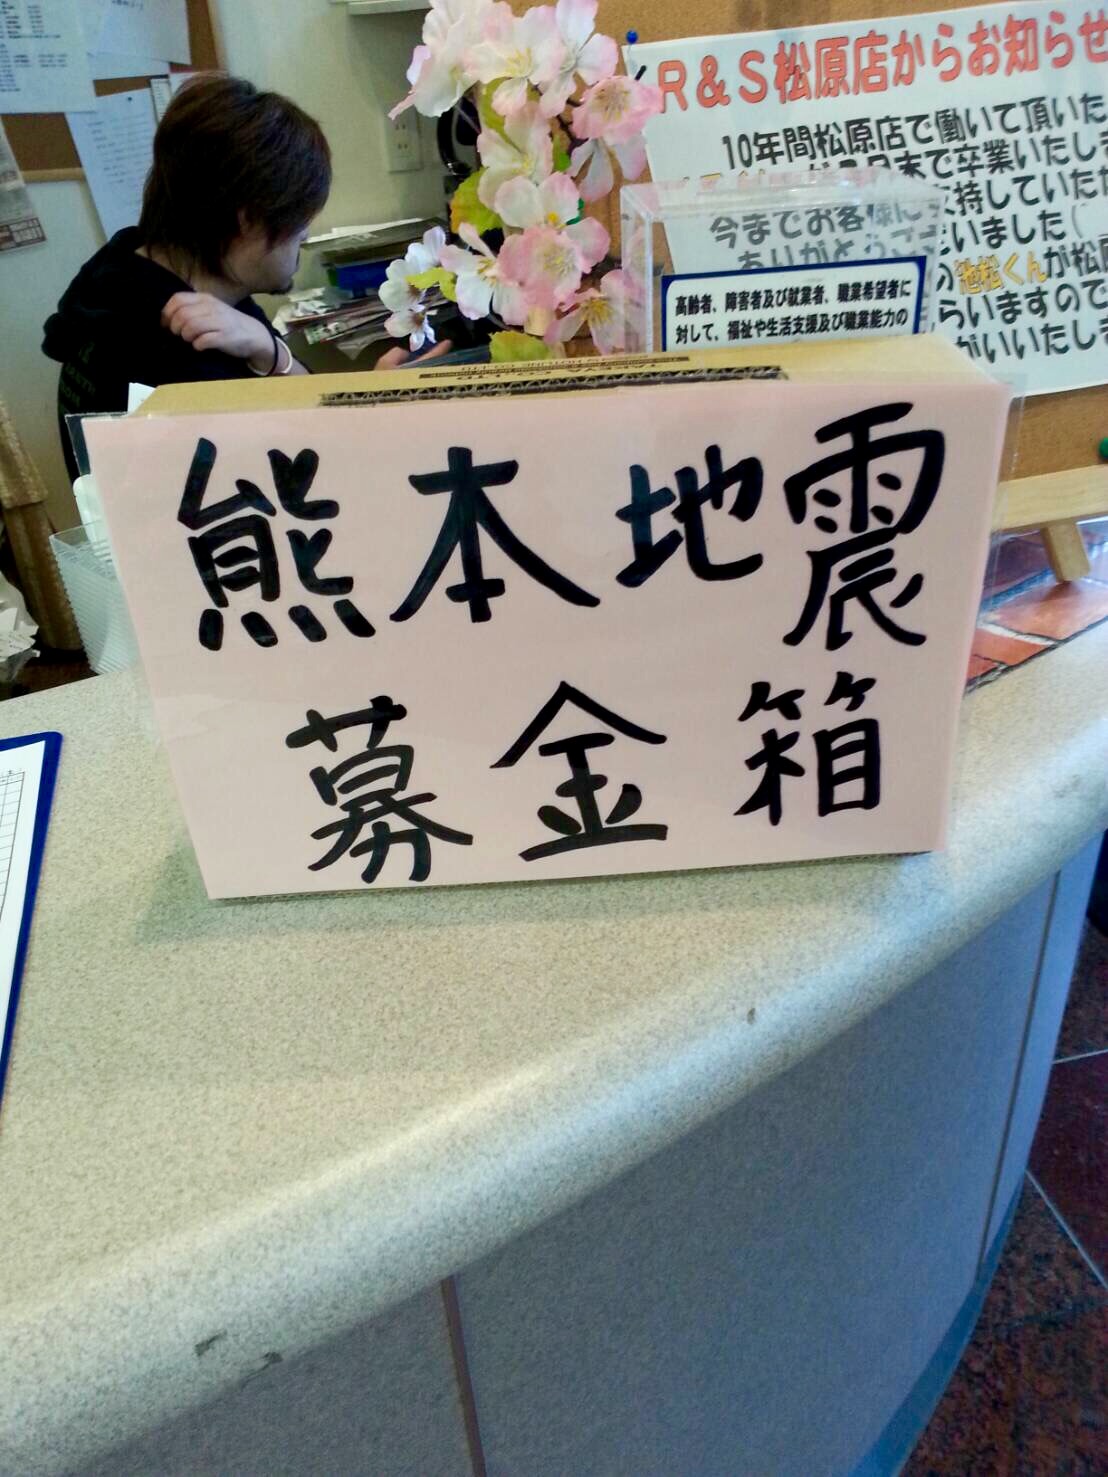 R&S松原店からお知らせ
10年間松原店で働いて頂いた
で卒業いたしま
今までお客様に支持していただ
ありがとうございました(
の池松くんが松原
らいますので
がいいたしま
高齢者、障害者及び就業者、職業希望者に
対して、福祉や生活支援及び職業能力の
熊本地震
募金箱